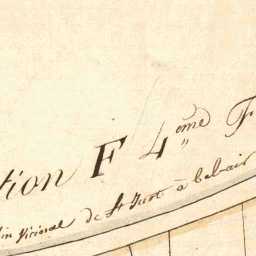 tion F 4ème F
in Vicinal de St Just à belair